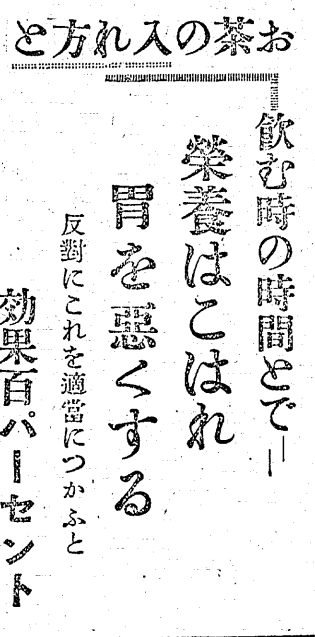 お茶の入れ方と
飲む時の時間とで＝
榮養はこはれ
胃を悪くする
反對にこれを適當につかふと
効果百パーセント